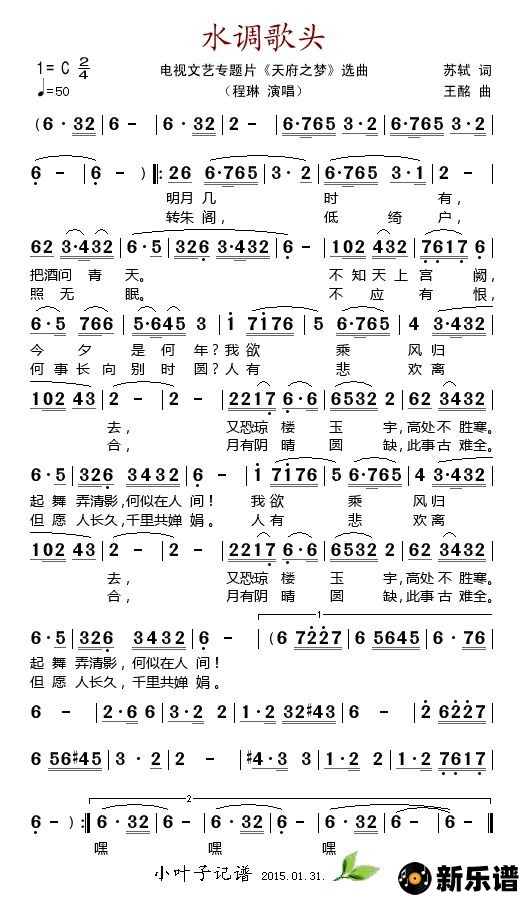 水调歌头
1= C 2/4
电视文艺专题片《天府之梦》选曲 苏轼 词
♩=50
（程琳 演唱） 王酩 曲
( 6 · 32 | 6 - | 6 - | 3 · 2 | 2 - | 6·765 | 3 · 2 | 6·765 3·2 |
6 - | 6 - ) ‖: 26 6·765 | 3 · 2 | 6·765 3·1 | 2 - |
明月 几 时 有,
转朱 阁, 低 绮 户,
62 3·432 | 6 · 5 | 326 3·432 | 6 - | 102 432 | 7617 6 |
把酒问 青 天。 不 知 天 上 宫 阙,
照 无 眠。 不 应 有 恨,
6 · 5 766 | 5·645 3 | 1 7176 | 5 6·765 | 4 3·432 |
今 夕 是 何 年? 我 欲 乘 风 归
何 事 长 向 别 时 圆? 人 有 悲 欢 离
102 43 | 2 - | 2 - | 2217 6·6 | 6532 2 | 62 3432 |
去, 又恐琼 楼 玉 宇, 高处 不 胜寒。
合, 月有阴 晴 圆 缺, 此事 古 难全。
6 · 5 | 326 3432 | 6 - | 1 7176 | 5 6·765 | 4 3·432 |
起 舞 弄清影, 何似在人 间! 我 欲 乘 风 归
但 愿 人长久, 千里共婵 娟。 人 有 悲 欢 离
102 43 | 2 - | 2 - | 2217 6·6 | 6532 2 | 62 3432 |
去, 又恐琼 楼 玉 宇, 高处 不 胜寒。
合, 月有阴 晴 圆 缺, 此事 古 难全。
1
6 · 5 | 326 3432 | 6 - | ( 6 7227 | 6 5645 | 6 · 76 |
起 舞 弄清影, 何似在人 间!
但 愿 人长久, 千里共婵 娟。
6 - | 2 · 6 | 3 · 2 | 2 · 1 | 32#43 | 2 - | 2 6227 |
6 56#45 | 3 · 2 | 2 - | #4 · 3 | 3 - | 1 · 2 | 7617 |
2
6 - ) :‖ 6 · 32 | 6 · 32 | 6 · 32 | 6 - | 6 - ‖
嘿 嘿 嘿
小叶子记谱 2015.01.31.
新乐谱